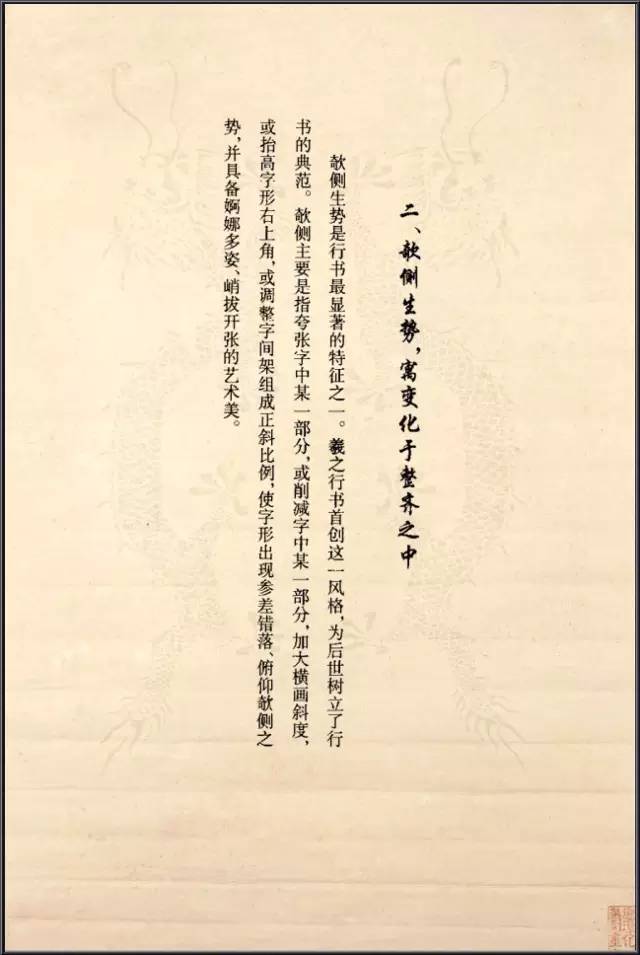 二、欹侧生势，寓变化于整齐之中
欹侧生势是行书最显著的特征之一。羲之行书首创这一风格，为后世树立了行
书的典范。欹侧主要是指夸张字中某一部分，或削减字中某一部分，加大横画斜度，
或抬高字形右上角，或调整字间架组成正斜比例，使字形出现参差错落、俯仰欹侧之
势，并具备婀娜多姿、峭拔开张的艺术美。